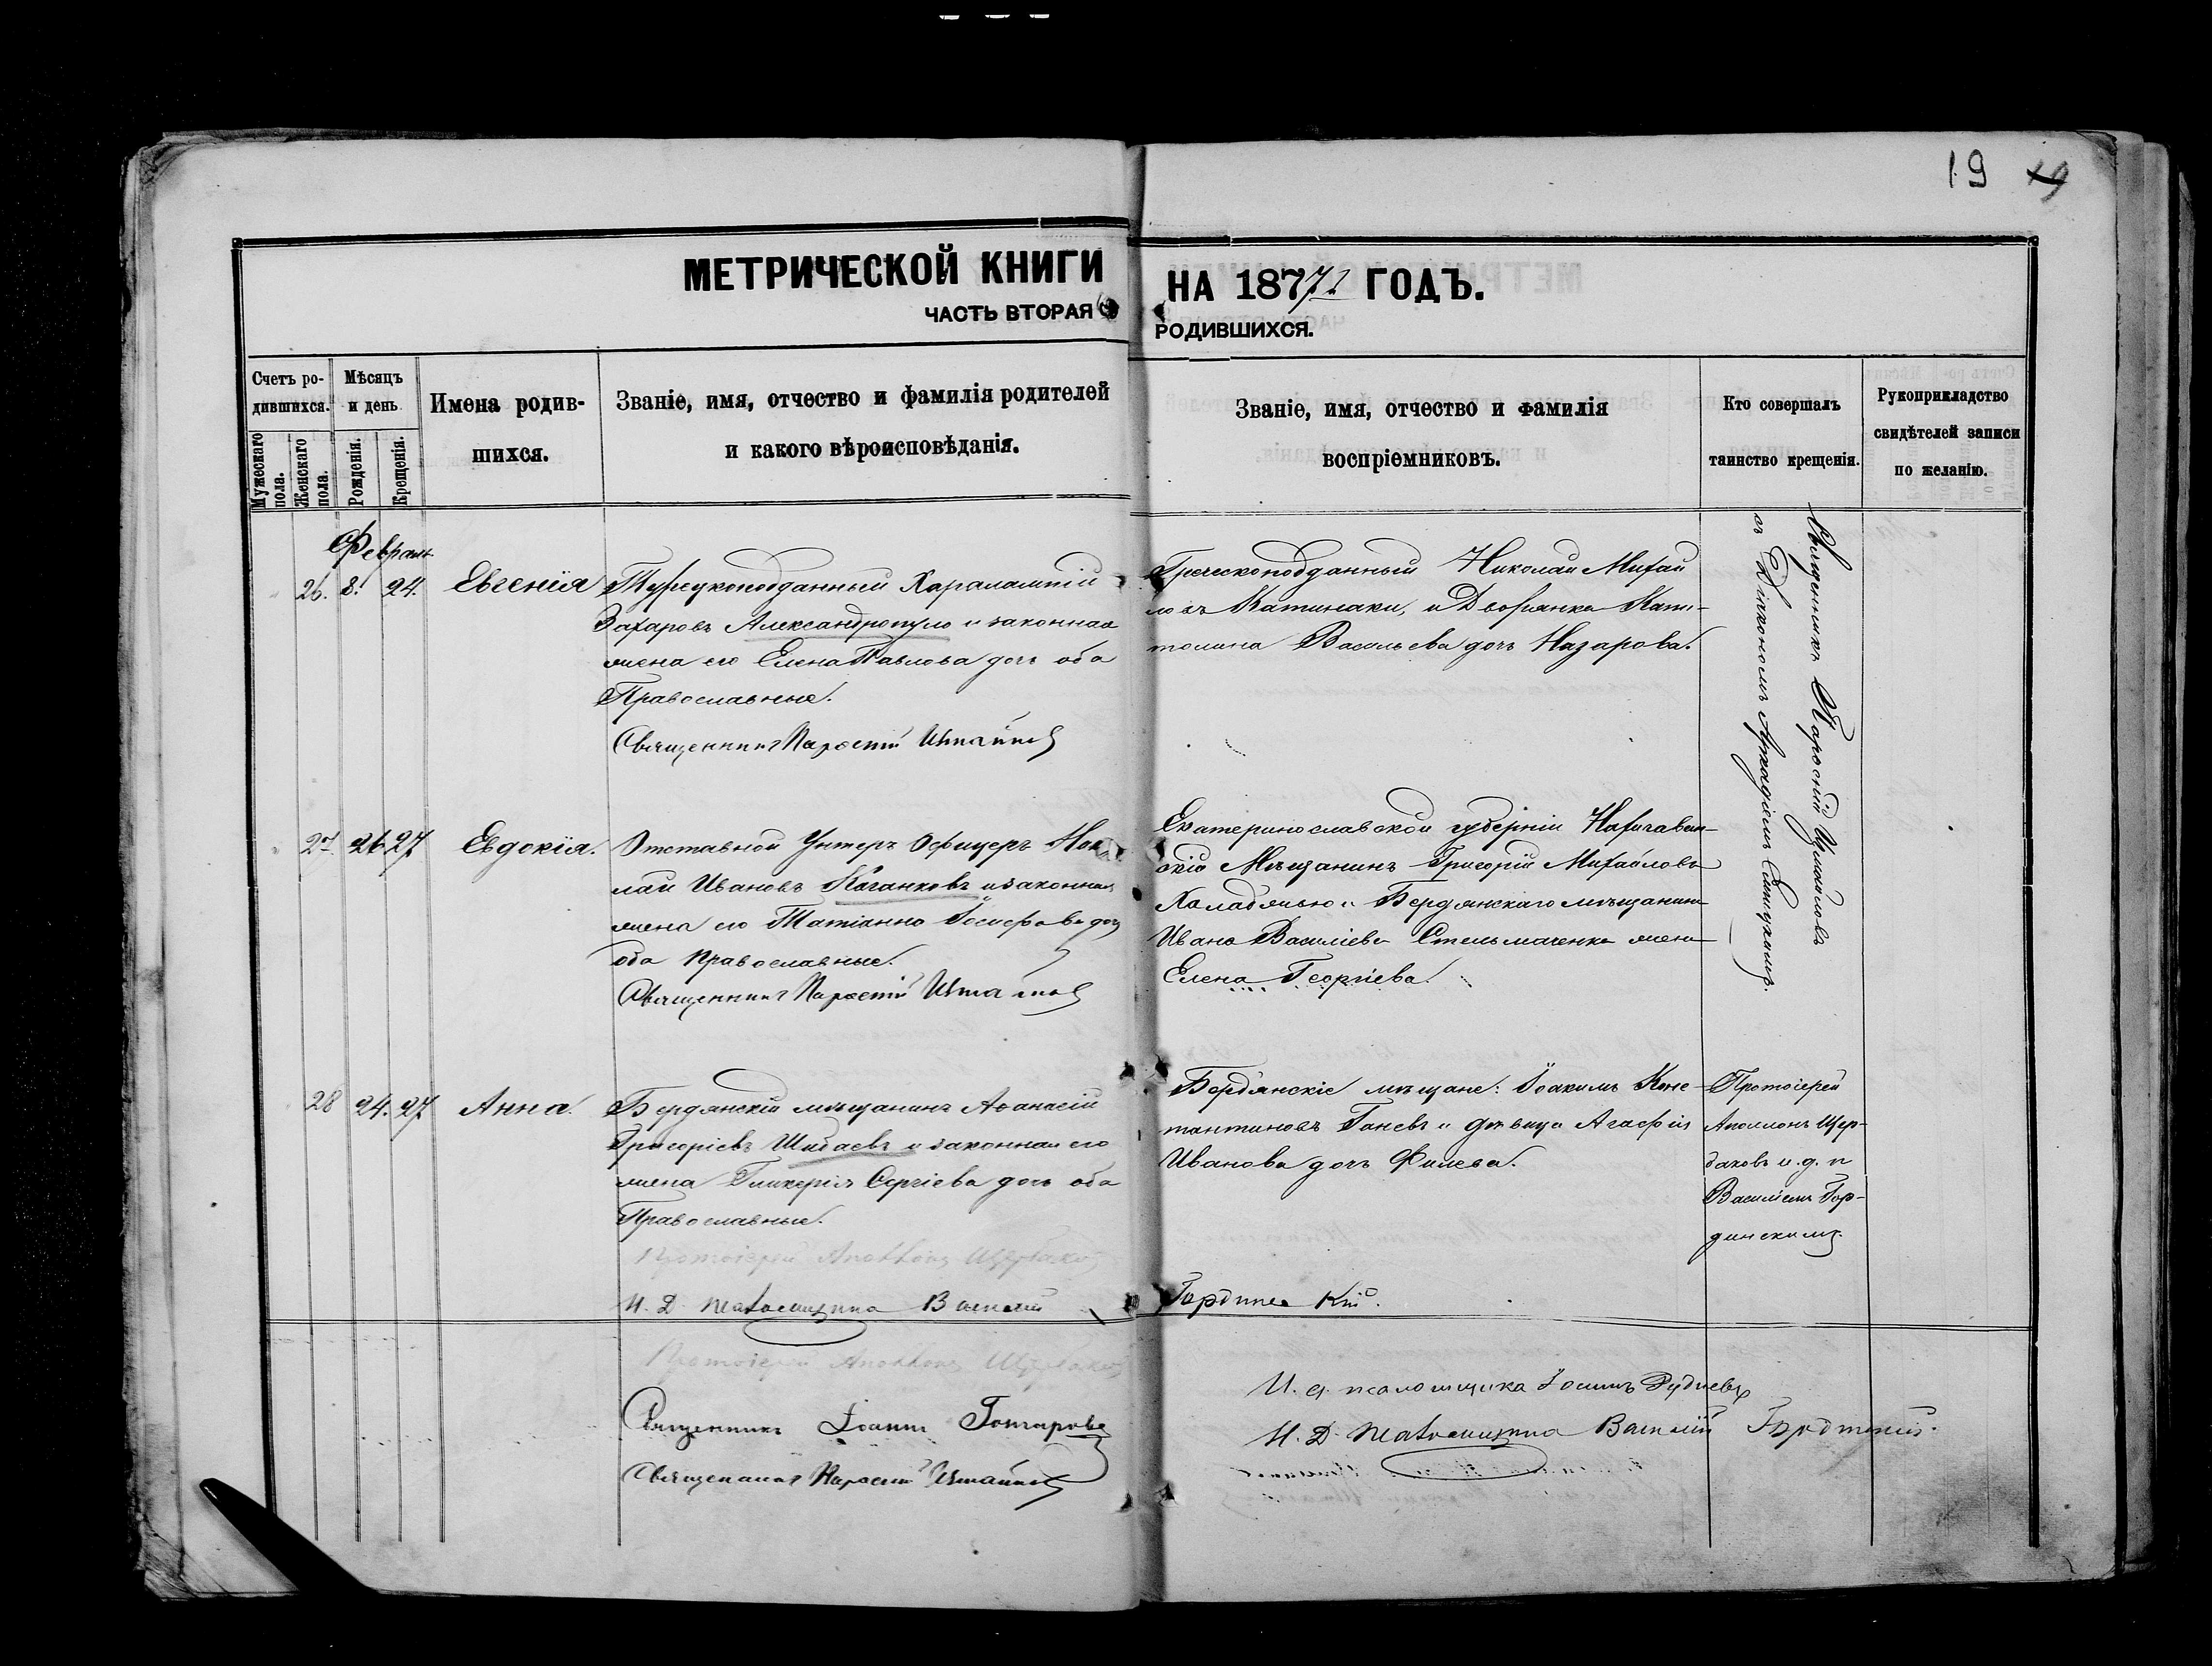 19
МЕТРИЧЕСКОЙ КНИГИ НА 1877 ГОДЪ.
ЧАСТЬ ВТОРАЯ РОДИВШИХСЯ.
Счетъ ро-
дившихся.
Мужескаго пола.
Женскаго пола.
Мѣсяцъ
и день
Рожденія.
Крещенія.
Имена родив-
шихся.
Званіе, имя, отчество и фамилія родителей
и какого вѣроисповѣданія.
Званіе, имя, отчество и фамилія
воспріемниковъ.
Кто совершалъ
таинство крещенія.
Рукоприкладство
свидѣтелей записи
по желанію.
26. 8. 24. Евгенія
Турецкоподданный Харалампій
Захаровъ Александропуло и законная
жена его Елена Павлова дочь оба
Православные.
Священникъ
Греческоподданный Николай Михай
ловъ и Дворянка Капи-
толина Васильева дочь Назарова.
Священникъ
съ Діакономъ Аркадіемъ
27 26 27 Евдокія.
Отставной Унтеръ Офицеръ
лай Ивановъ и законная
жена его Татіанна Іосифова дочь
оба Православные.
Священникъ
Екатеринославской губерніи
скій Мѣщанинъ Григорій Михайловъ
и Бердянскаго мѣщанина
Ивана Василіева Стельмаченка жена
Елена Георгіева.
28 24. 27 Анна.
Бердянскій мѣщанинъ Аѳанасій
Григоріевъ Шибаевъ и законная его
жена Гликерія Сергіева дочь оба
Православные.
Протоіерей
И. Д. Псаломщика Василій
Бердянскіе мѣщане: Іоакимъ Конс-
тантиновъ Ганевъ и дѣвица Агафія
Иванова дочь Филева.
Протоіерей
Аполлонъ Щер-
баковъ и. д. п
Василіемъ Гор-
динскимъ.
Протоіерей
Священникъ Іоаннъ Гончаровъ
Священникъ
И. д. псаломщика Іосифъ Рудневъ
И. Д. Псаломщика Василій